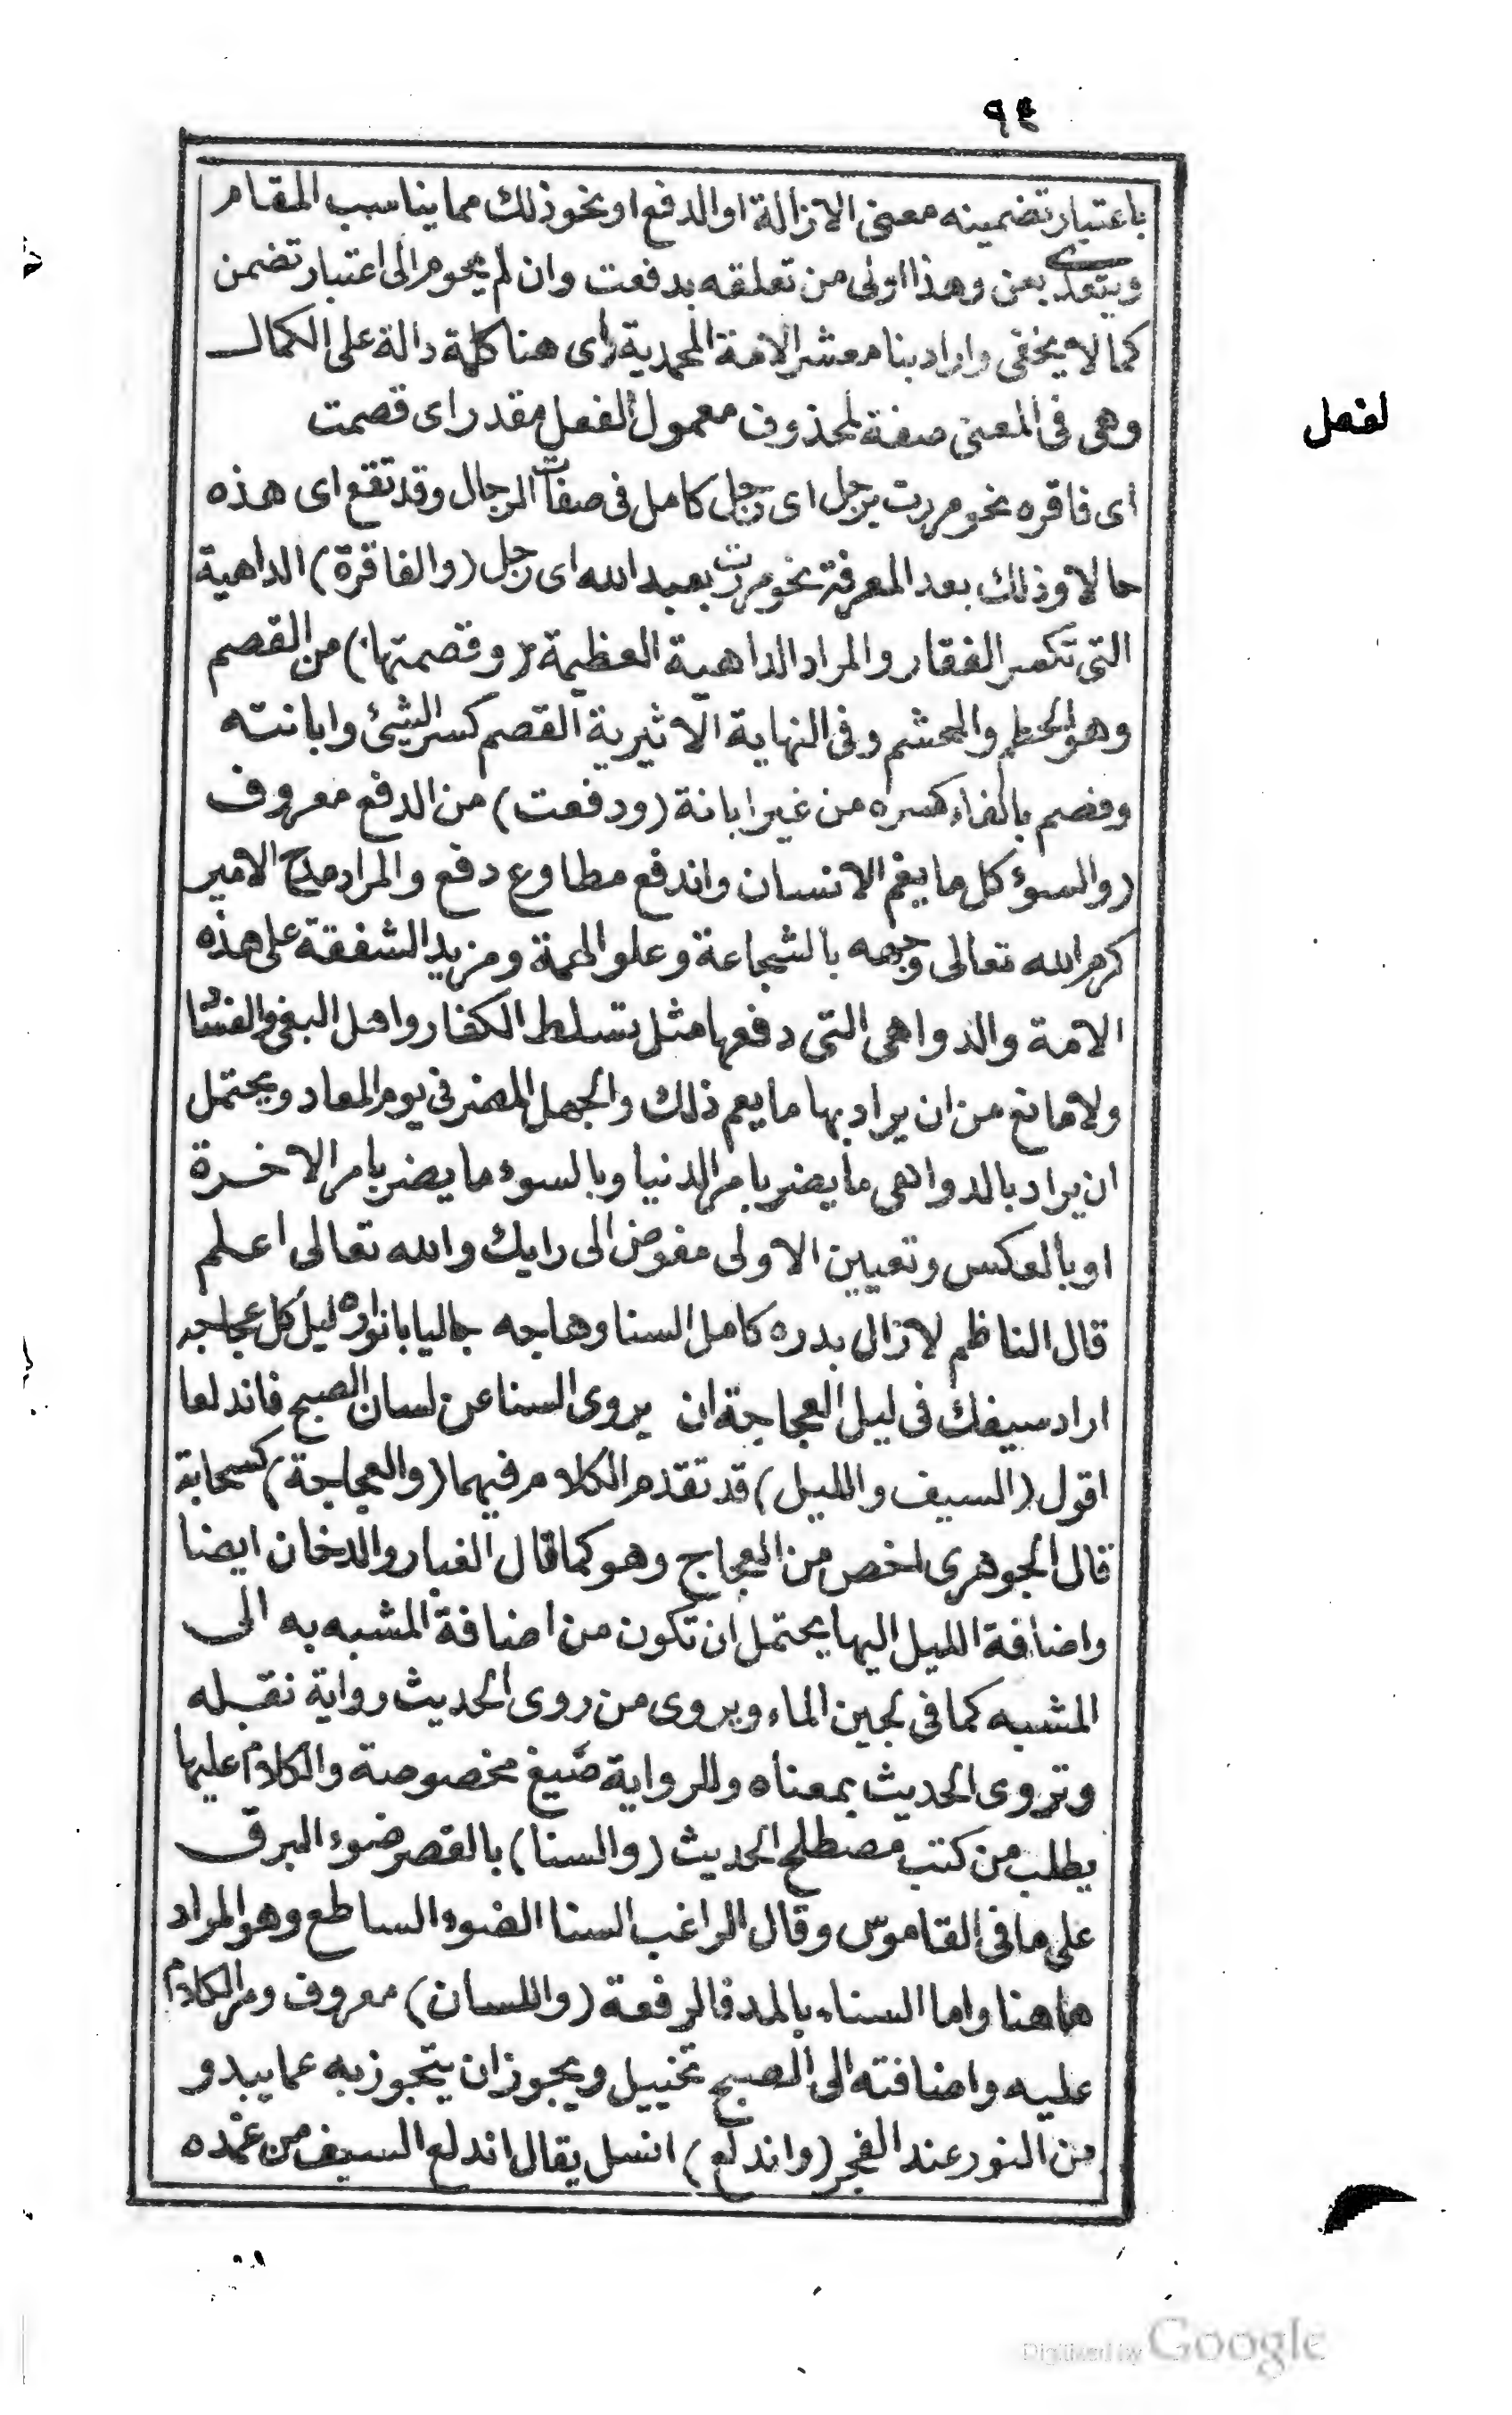 ٩٤
باعتبار تضمينه معنى الازالة او الدفع او نحو ذلك مما يناسب المقام
ويتعدى بعن وهذا اولى من تعلقه بدفعت وان لم يحوم الى اعتبار تضمن
كما لا يخفى واراد بنا معشر الامة المحمدية واى هنا كلمة دالة على الكمال
وهى فى المعنى صفة لمحذوف معمول لفعل مقدر اى قصمت
لفعل
اى فاقره نحو مررت برجل اى رجل كامل فى صفات الرجال وقد تقع اى هذه
حالا وذلك بعد المعرفة نحو مررت بعبد الله اى رجل (والفاقرة) الداهية
التى تكسر الفقار والمراد الداهية العظيمة (وقصمتها) من القصم
وهو الحطم والهشم وفى النهاية الاثيرية القصم كسر الشيئ وابانته
وفصم بالفاء كسره من غير ابانة (ودفعت) من الدفع معروف
(والسوء كل ما يغم الانسان واندفع مطاوع دفع والمراد مدح الامير
كرم الله تعالى وجهه بالشجاعة وعلو الهمة ومزيد الشفقة على هذه
الامة والدواهى التى دفعها مثل تسلط الكفار واهل البغى والفسا
ولا مانع من ان يراد بها ما يعم ذلك والجهل المضر فى يوم المعاد ويحتمل
ان يراد بالدواهى ما يضر بامر الدنيا وبالسوء ما يضر بامر الاخرة
او بالعكس وتعيين الاولى مفوض الى رايك والله تعالى اعلم
قال الناظم لازال بدره كامل السنا وهاجه جاليا بانواره ليل كل عجاجه
اراد سيفك فى ليل العجاجة ان يروى السنا عن لسان الصبح فاندلعا
اقول (السيف والليل) قد تقدم الكلام فيهما (والعجاجة) كسحابة
قال الجوهرى اخص من العجاج وهو كما قال الغبار والدخان ايضا
واضافة الليل اليها يحتمل ان تكون من اضافة المشبه به الى
المشبه كما فى لجين الماء ويروى من روى الحديث رواية نقله
وتروى الحديث بمعناه وللرواية صيغ مخصوصة والكلام عليها
يطلب من كتب مصطلح الحديث (والسنا) بالقصر ضوء البرق
على ما فى القاموس وقال الراغب السنا الضوء الساطع وهو المراد
هاهنا واما السناء بالمد فالرفعة (واللسان) معروف ومر الكلام
عليه واضافته الى الصبح تخييل ويجوز ان يتجوز به عما يبدو
من النور عند الفجر (واندلع) انسل يقال اندلع السيف من غمده
Digitized by Google